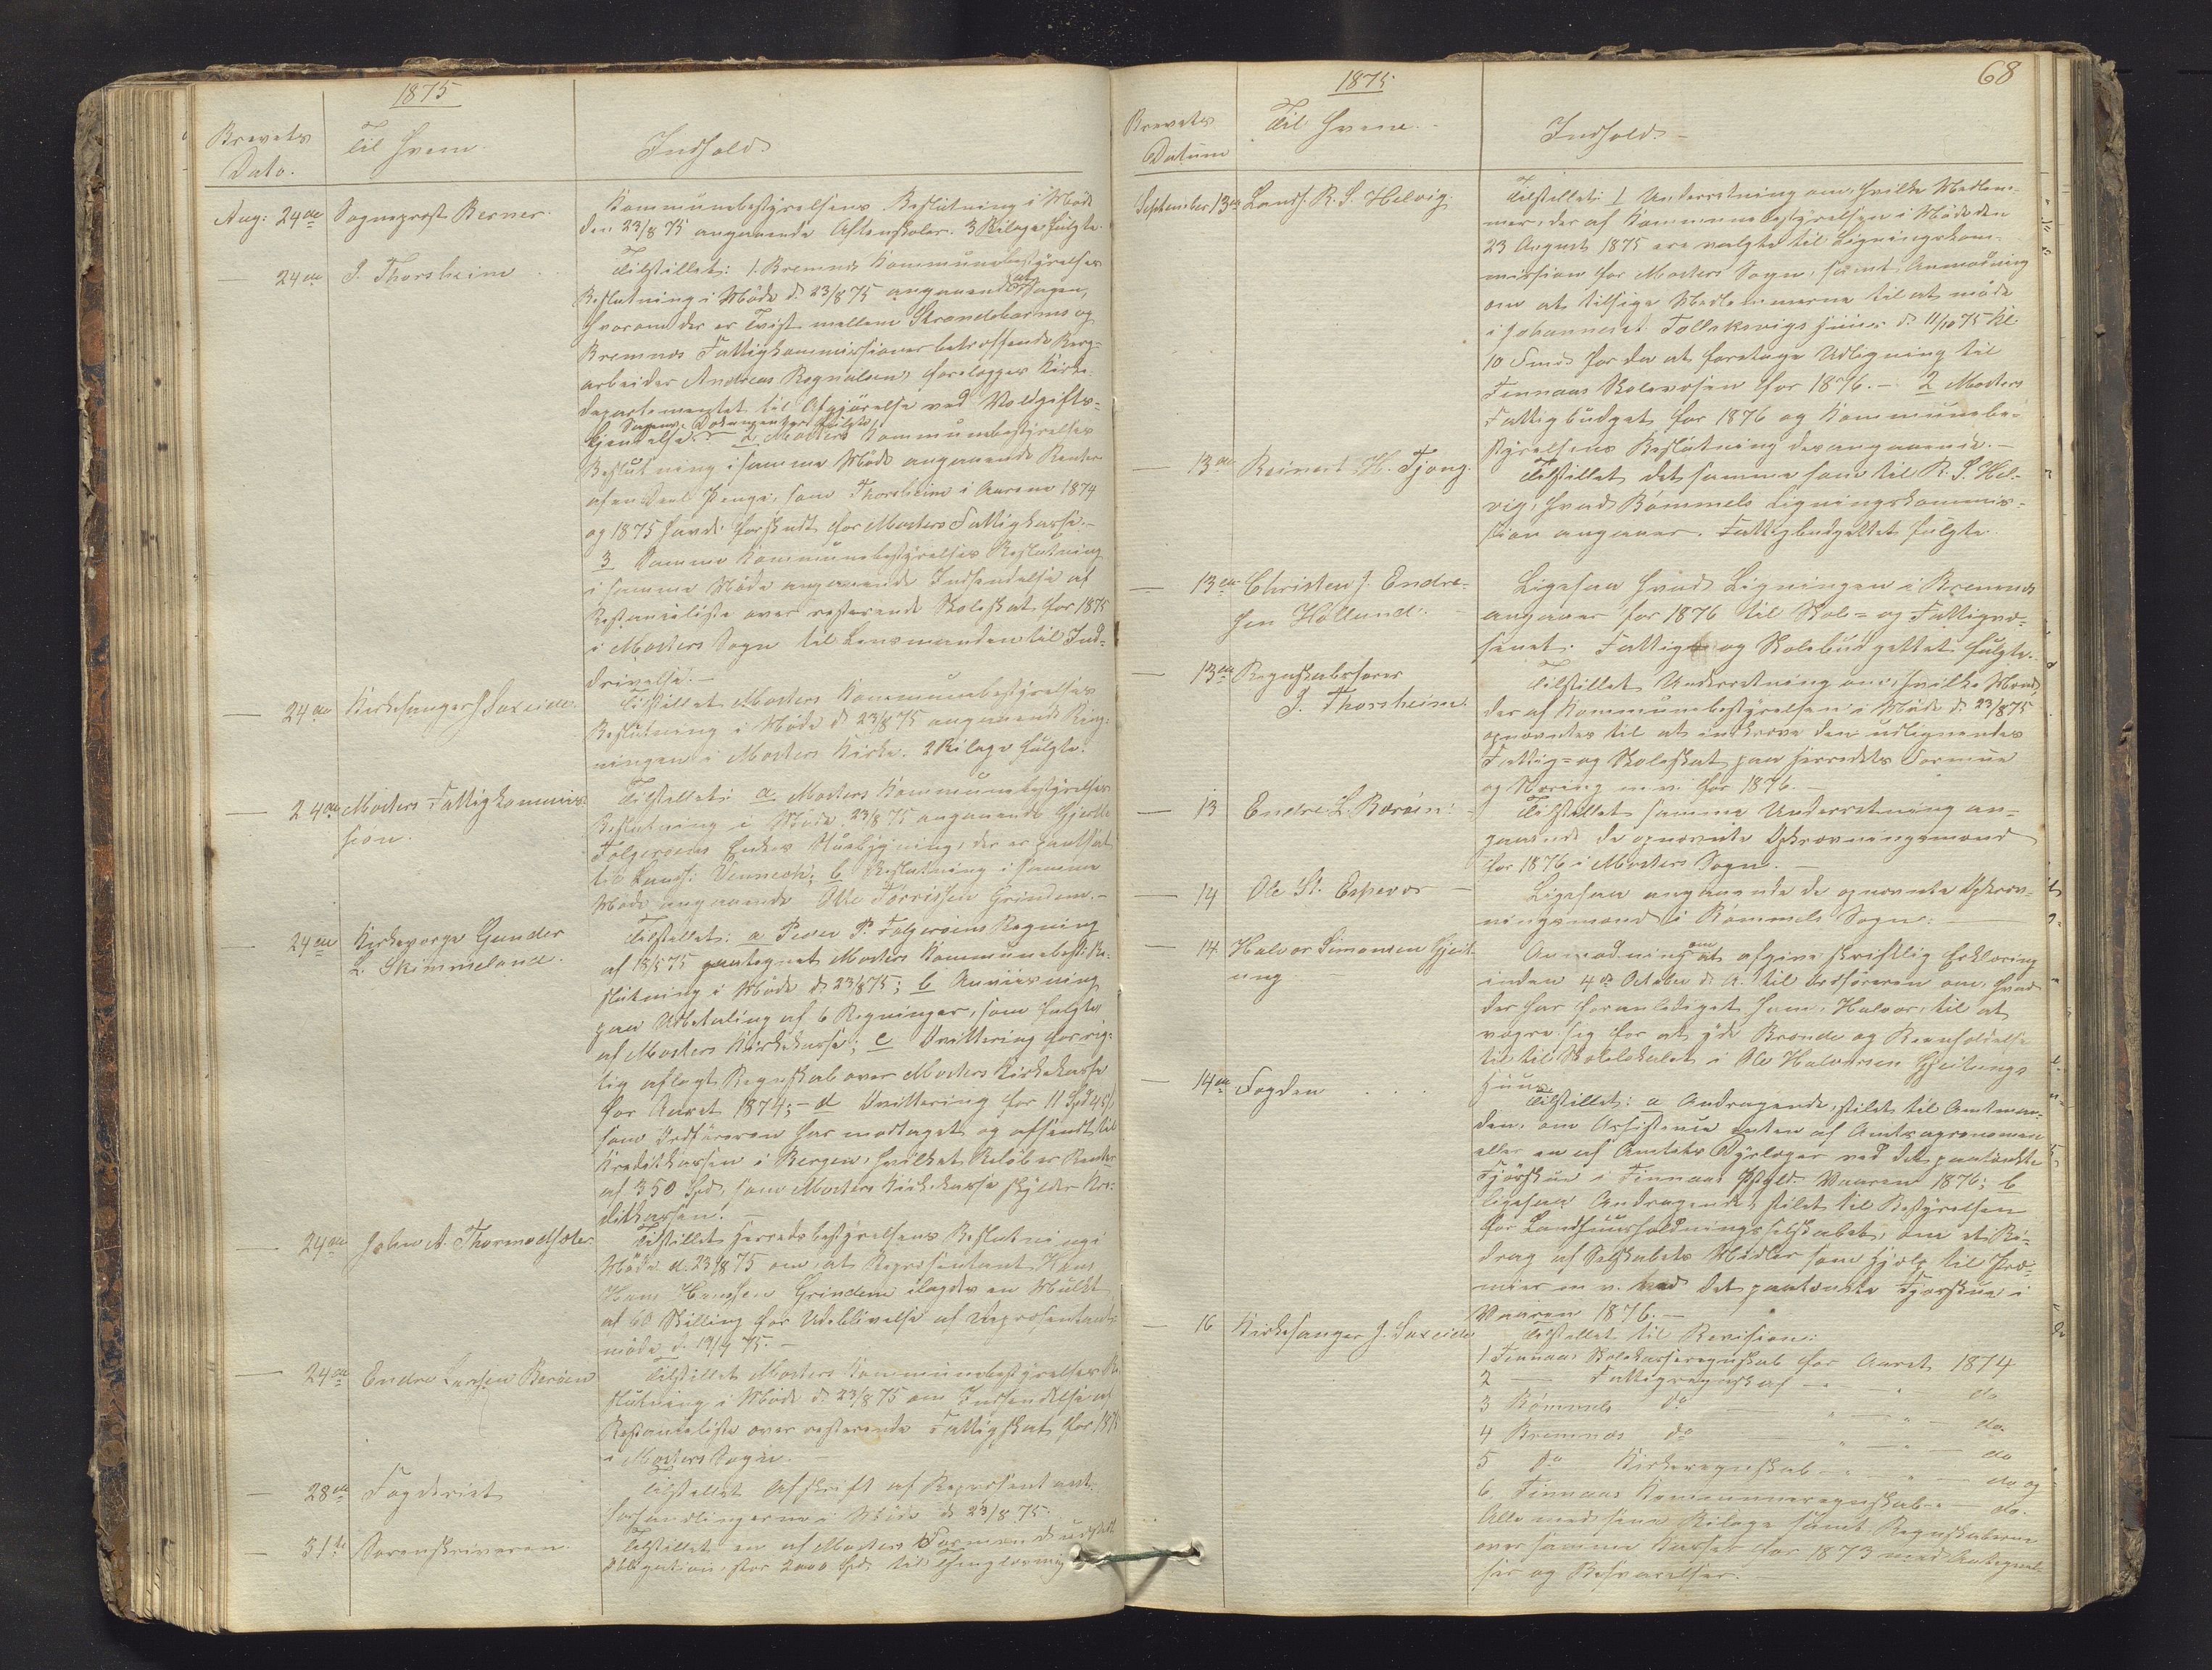 1875
Brevets
Dato.
Til Hvem.
Indhold
Aug: 24de Sogneprest Berner.
Kommunebestyrelsens Beslutning i Møde
den 23/8 75 angaaende Aftenskoler. 3 Bilage fulgte.
— 24de J. Thorsheim
Tilstillet: 1. Bremnes Kommunebestyrelses
Beslutning i Møde d. 23/8 75 angaaende at Sagen,
hvorom der er Tvist mellem Strandebarms og
Bremnes Fattigkommissioner betræffende Berg-
arbeider Andreas Rognalsen, forelægges Kirke-
departementet til Afgjørelse ved Voldgifts-
Sagens Dokumenter fulgte.
kjendelse. — 2 Mosters Kommunebestyrelses
Beslutning i samme Møde angaaende Renter
af en Deel Penge, som Thorsheim i Aarene 1874
og 1875 havde forskudt for Mosters Fattigkasse. —
3 Samme Kommunebestyrelses Beslutning
i samme Møde angaaende Indsendelse af
Restanceliste over resterende Skoleskat for 1875
i Mosters Sogn til Lensmanden til Ind-
drivelse. —
— 24de Kirkesanger J Saxeide.
Tilstillet Mosters Kommunebestyrelses
Beslutning i Møde d. 23/8 75 angaaende Ring-
ningen i Mosters Kirke. 2 Bilage fulgte.
— 24de Mosters Fattigkommis-
sion.
Tilstillet: a Mosters Kommunebestyrelses
Beslutning i Møde 23/8 75 angaaende
Følgerøens Enkes Huusbygning, der er pantsat
til Landh: Vennech; b Beslutning i samme
Møde angaaende Ole Tørrissen Grindem. —
— 24de Kirkeværge Gunder
L. Skimmeland.
Tilstillet: a Peder P. Følgerøens Regning
af 13/8 75 paategnet Mosters Kommunebest: Be-
slutning i Møde d. 23/8 75; b Anviisning
paa Udbetaling af 6 Regninger, som fulgte
af Mosters Kirkekasse; c Qvittering for rig-
tig aflagt Regnskab over Mosters Kirkekasse
for Aaret 1874; — d Qvittering for 11 Spd 45 s
som Ordføreren har modtaget og afsendt til
Kreditkassen i Bergen, hvilket Beløb er Renter
af 350 Spd, som Mosters Kirkekasse skylder Kre-
ditkassen. —
— 24de John A. Thormodsæter.
Tilstillet Herredsbestyrelsens Beslutning i
Møde d. 23/8 75 om, at Repræsentant Hans
Hans Hansen Grindem ilagdes en Mulkt
af 60 Skilling for Udeblivelse af Repræsentant-
møde d. 19/4 75. —
— 24de Endre Larsen Børøen
Tilstillet Mosters Kommunebestyrelses Be-
slutning i Møde d. 23/8 75 om Indsendelse af
Restanceliste over resterende Fattigskat for 1875
i Mosters Sogn. —
— 28de Fogderiet
Tilstillet Afskrift af Repræsentant-
forhandlingerne i Møde d. 23/8 75.
— 31te Sorenskriveren.
Tilstillet en af Mosters Formænd udstedt
Obligation, stor 2000 Spd til Thinglæsning
1875
68
Brevets
Datum
Til Hvem. —
Indhold. —
September 13de Landh. R. S. Helvig.
Tilstillet: 1 Underretning om, hvilke Medlem-
mer, der af Kommunebestyrelsen i Møde den
23 August 1875 ere valgte til Ligningskom-
mission for Mosters Sogn, samt Anmodning
om at tilsige Medlemmerne til at møde
i Johannes Tollaksvigs Huus d. 11/10 75 Kl.
10 Fmd for da at foretage Udligning til
Finnaas Skolevæsen for 1876. — 2 Mosters
Fattigbudget for 1876 og Kommunebe-
styrelsens Beslutning desangaaende. —
— 13de Reinert H. Tjong.
Tilstillet det samme som til R. S. Hel-
vig, hvad Bømmels Ligningskommis-
sion angaaer. Fattigbudgettet fulgte.
— 13de Christen J. Endre-
sen Hollund.
Ligesaa hvad Ligningen i Bremnes
angaaer for 1876 til Skole- og Fattigvæ-
senet. Fattig- og Skolebudgettet fulgte.
— 13de Regnskabsfører
J. Thorsheim.
Tilstillet Underretning om, hvilke Mænd,
der af Kommunebestyrelsen i Møde d. 23/8 75
opnævntes til at indkræve den udlignendes
Fattig- og Skoleskat paa Herredets Formue
og Næring m. v. for 1876. —
— 13 Endre L. Børøen.
Tilstillet samme Underretning an-
gaaende de opnævnte Opkrævningsmænd
for 1876 i Mosters Sogn. —
— 14 Ole St. Espevær —
Ligesaa angaaende de opnævnte Opkræv-
ningsmænd i Bømmels Sogn. —
— 14. Halvor Simonsen Gjeit-
ung
Anmodning om at afgive skriftlig Erklæring
inden 4de October d. A. til Ordføreren om, hvad
der har foranlediget ham, Halvor, til at
vægre sig for at yde Brænde og Reenholdelse
til til Skolelokalet i Ole Halvorsen Gjeitungs
Huus.
— 14de Fogden . . .
Tilstillet: a Andragende, stilet til Amtman-
den, om Assistence enten af Amtsagronomen
eller en af Amtets Dyrlæger ved det paatænkte
Fjørskue i Finnaas Pstgld. Vaaren 1876; b
ligesaa Andragende, stilet til Bestyrelsen
for Landhuusholdningsselskabet, om et Bi-
drag af Selskabets Midler som Hjælp til Præ-
mier m. v. ved det paatænkte Fjørskue i
Vaaren 1876. —
— 16 Kirkesanger J. Saxeide
Tilstillet til Revision:
1 Finnaas Skolekasseregnskab for Aaret 1874
2 — Fattigregnskab — " — " — do
3 Bømmels do — " — " — do.
4 Bremnes do — " — " — do
5 do Kirkeregnskab — " — " — do og
6. Finnaas Kommuneregnskab — " — do.
Alle med sine Bilage samt Regnskaberne
over samme Kasser for 1873 med Antegnel-
ser og Besvarelser. —